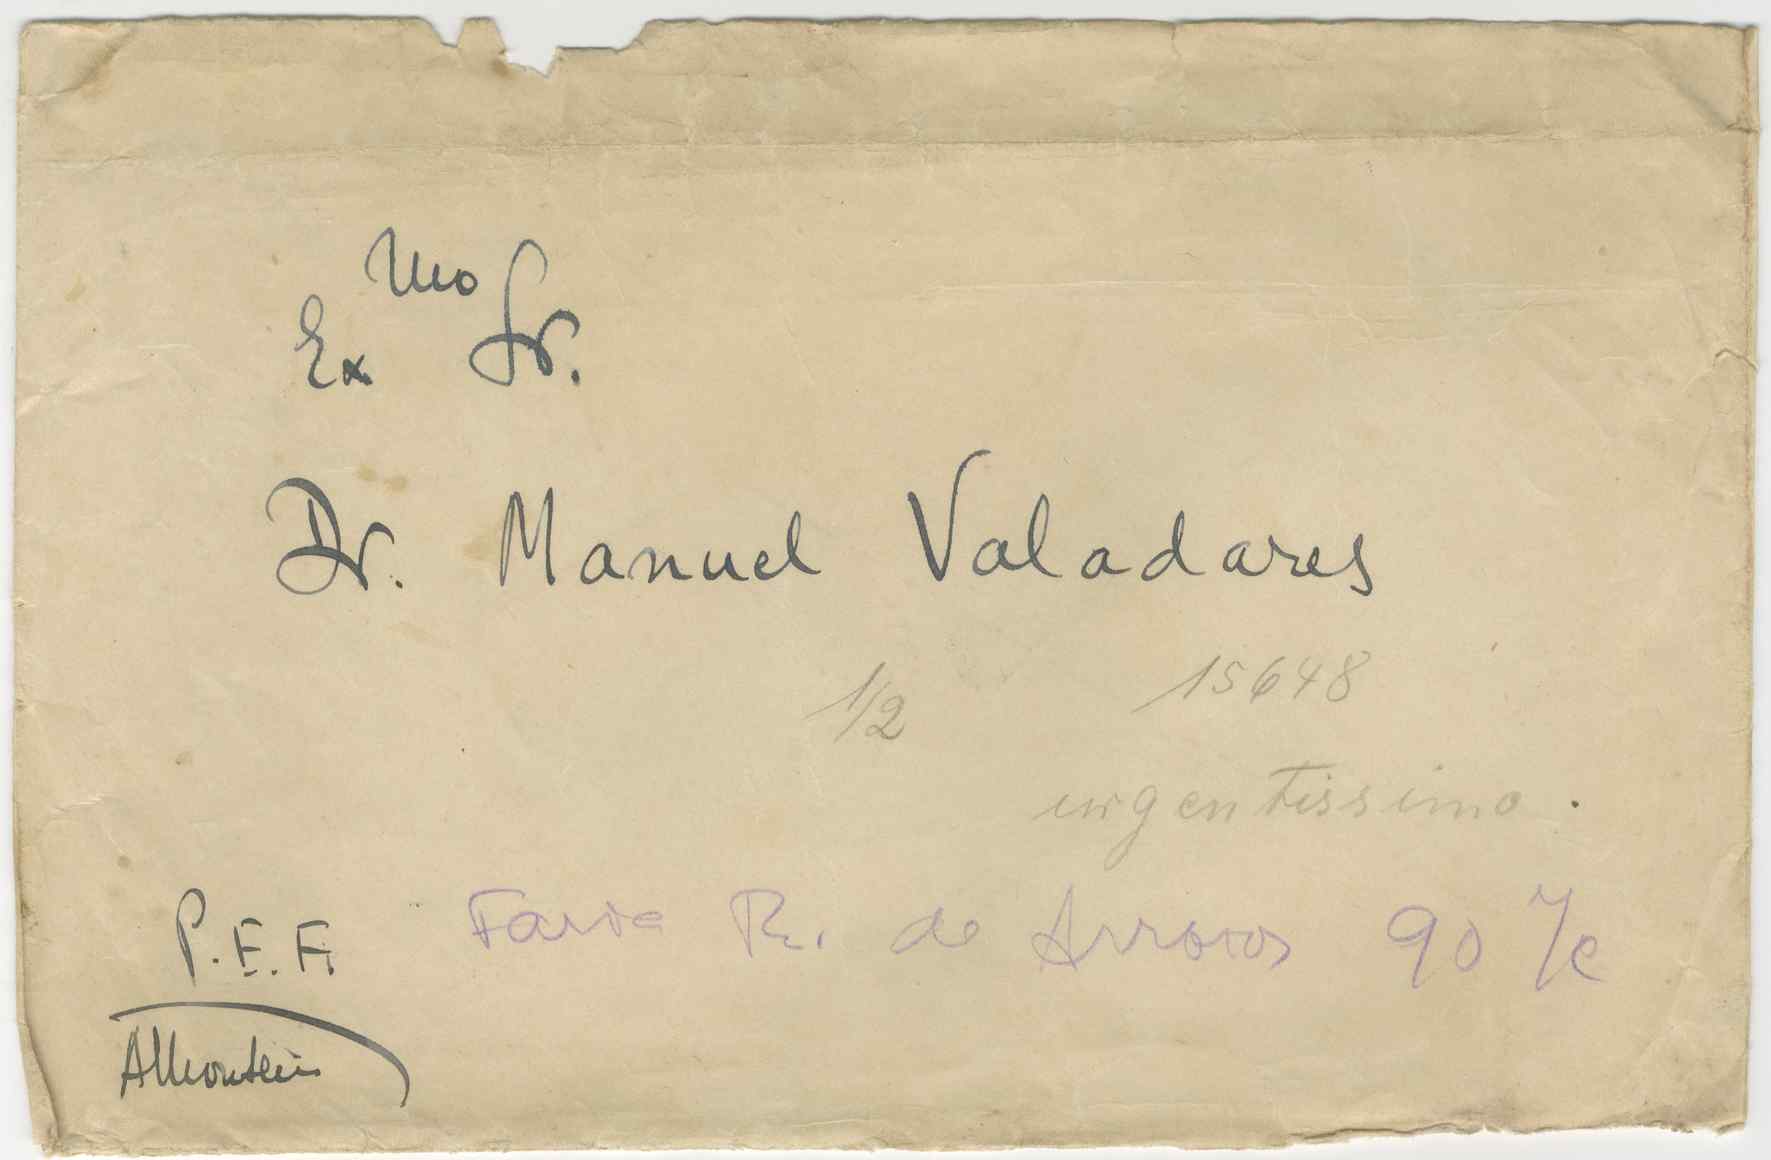 Ex mo Sr.
Dr. Manuel Valadares
1/2 15648
urgentissimo.
P.E.F. Faria R. de Arroios 90 1/c
AMonteiro